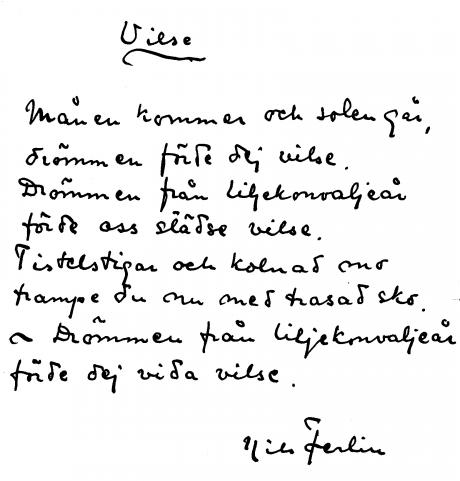 Vilse
Månen kommer och solen går,
drömmen förde dej vilse.
Drömmen från liljekonvaljeår
förde oss städse vilse.
Tistelstigar och kolnad mo
trampe du nu med trasad sko.
~ Drömmen från liljekonvaljeår
förde dej vida vilse.
Nils Ferlin